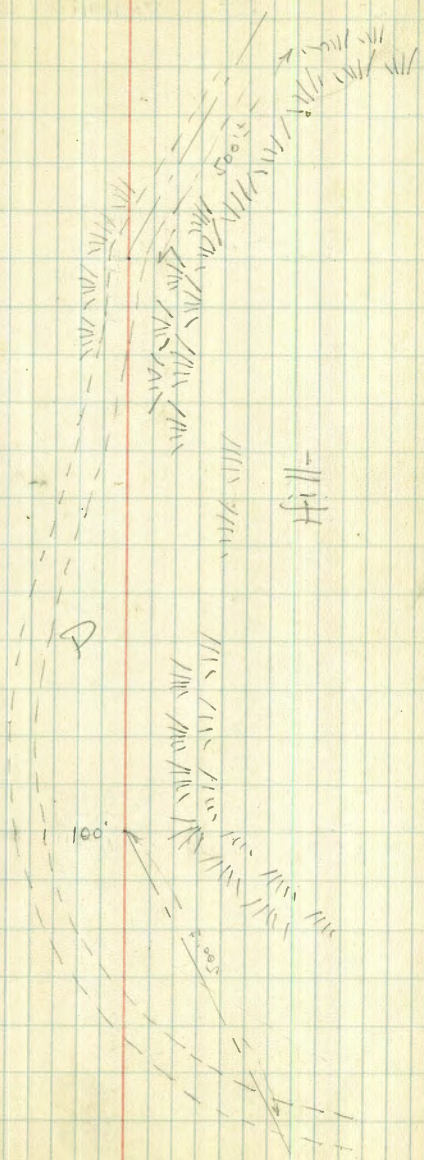 500'±
Hill
D
100'
500'±